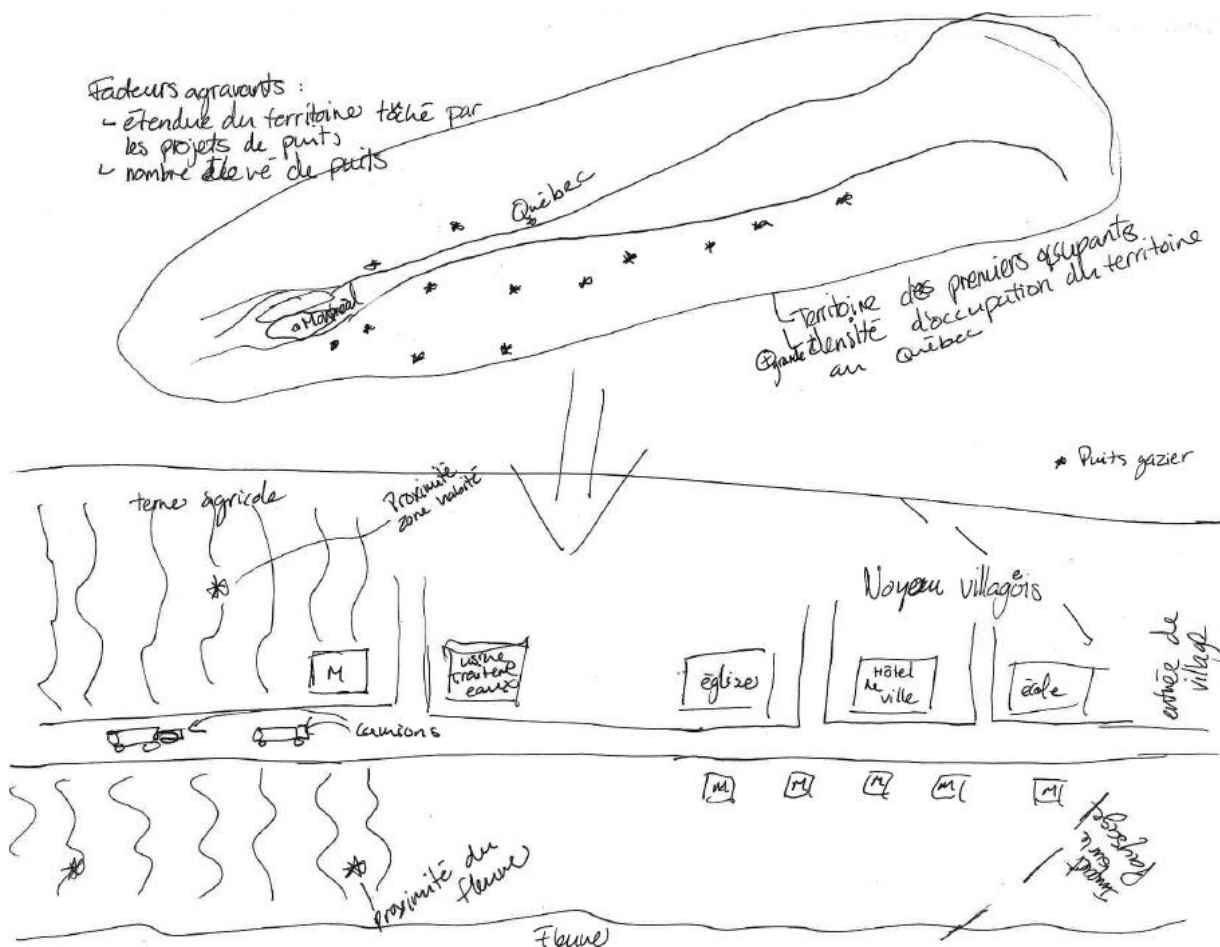 Facteurs agravants :
- étendue du territoire tôché par
les projets de puits
- nombre élevé de puits
Québec
Montréal
Territoire des premiers occupants
+ grande densité d'occupation du territoire
au Québec
* Puits gazier
terre agricole
Proximité
zone habité
Noyeau villageois
entrée de
village
M
usine
traitement
eaux
église
Hôtel
de
ville
école
camions
M
M
M
M
M
proximité du
fleuve
Impact
sur le
Paysage
Fleuve